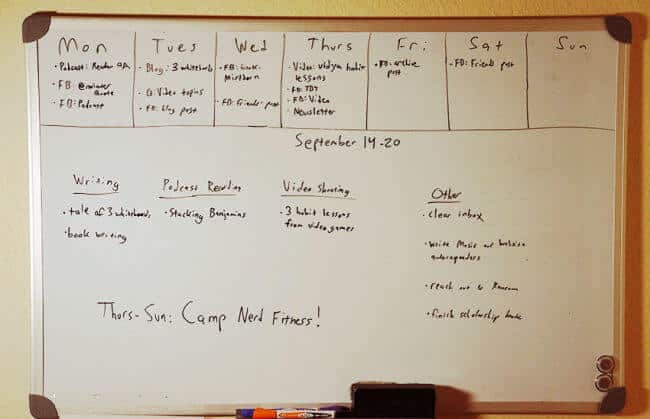 Mon
Tues
Wed
Thurs
Fri
Sat
Sun
• Podcast: Reader Q/A
• FB: reminder quote
• FB: Podcast
• Blog: 3 whiteboards
• Video topics
• FB: blog post
• FB:
• FB: Friends post
• Video: vidya habit
lessons
• FB: TBT
• FB: Video
• Newsletter
• FB: archive
post
• FB: Friends post
September 14-20
Writing
• tale of 3 whiteboards
• book writing
Podcast Reading
• Stacking Benjamins
Video Shooting
• 3 habit lessons
from video games
Other
• clear inbox
• write Music and Website
autoresponders
• reach out to Ransom
• finish scholarship
Thurs-Sun: Camp Nerd Fitness!